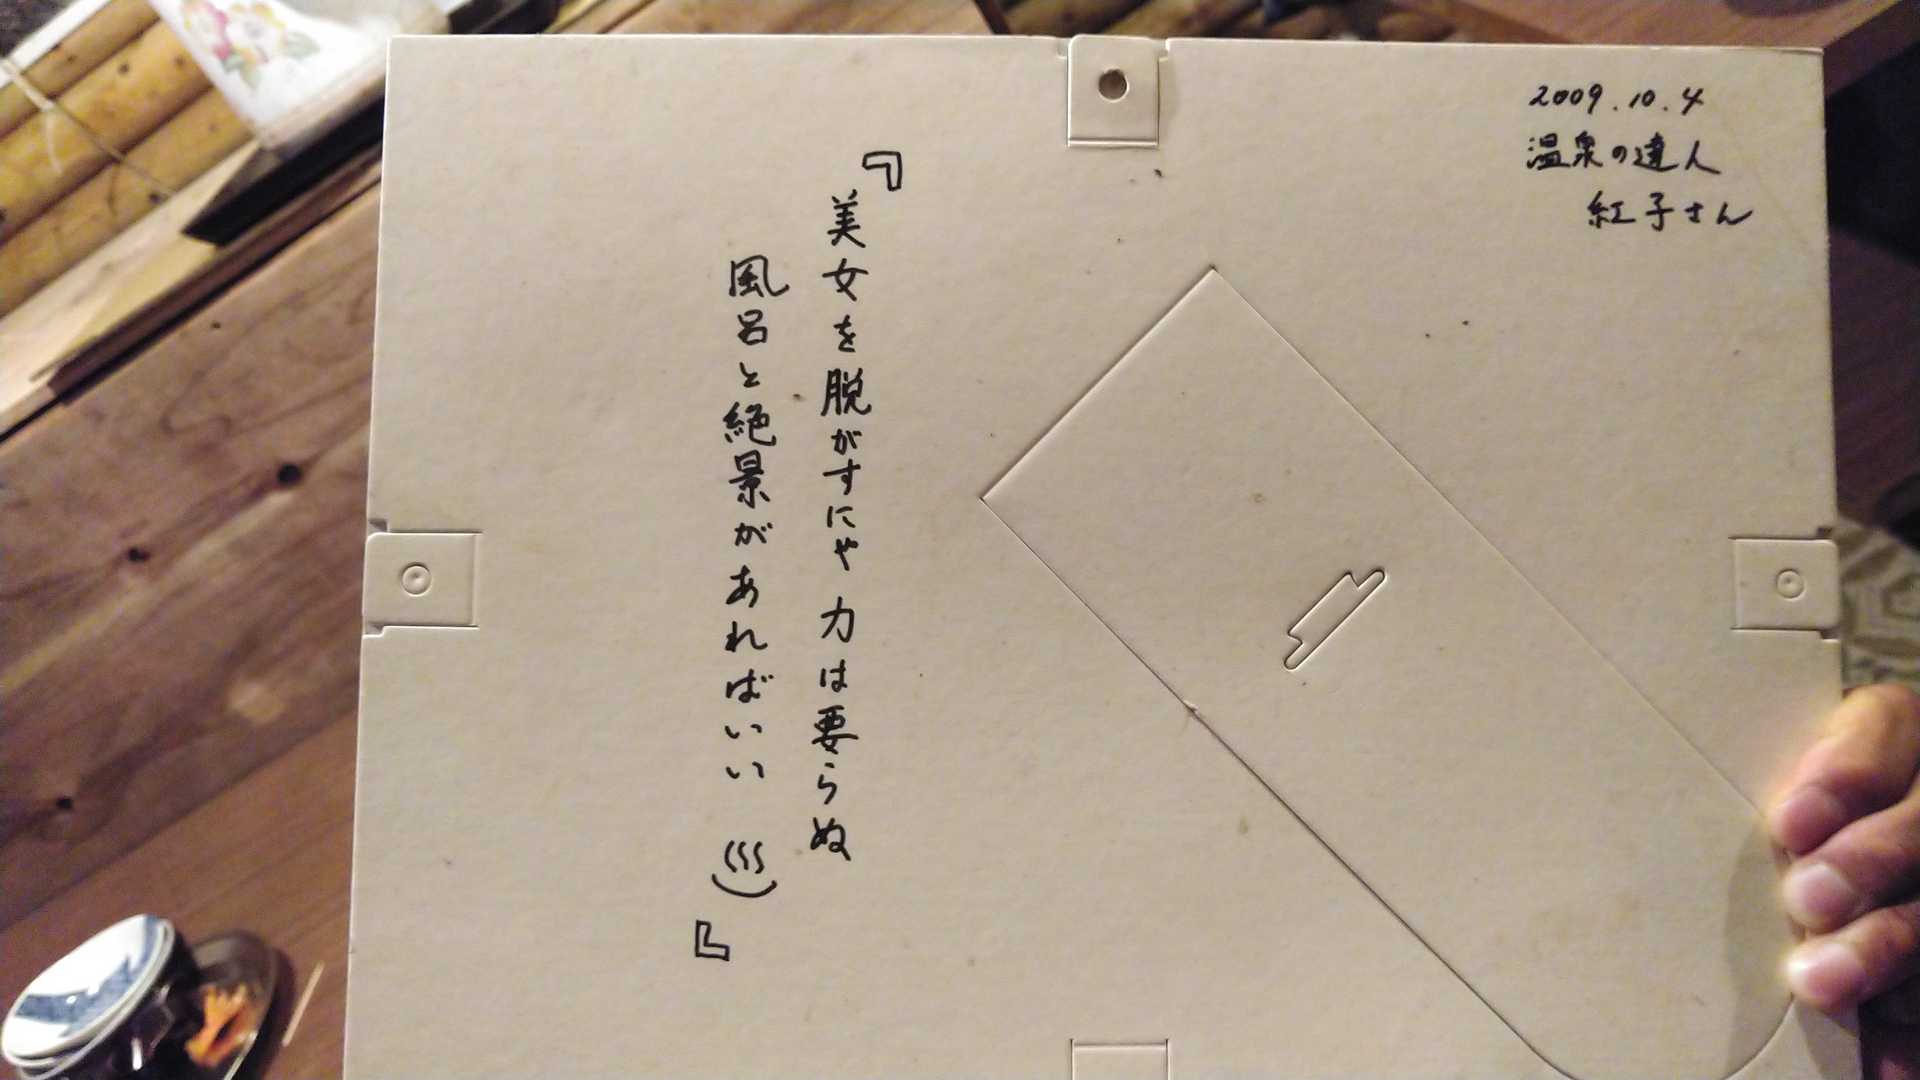 2009.10.4
温泉の達人
紅子さん
『美女を脱がすにゃ力は要らぬ
風呂と絶景があればいい♨』